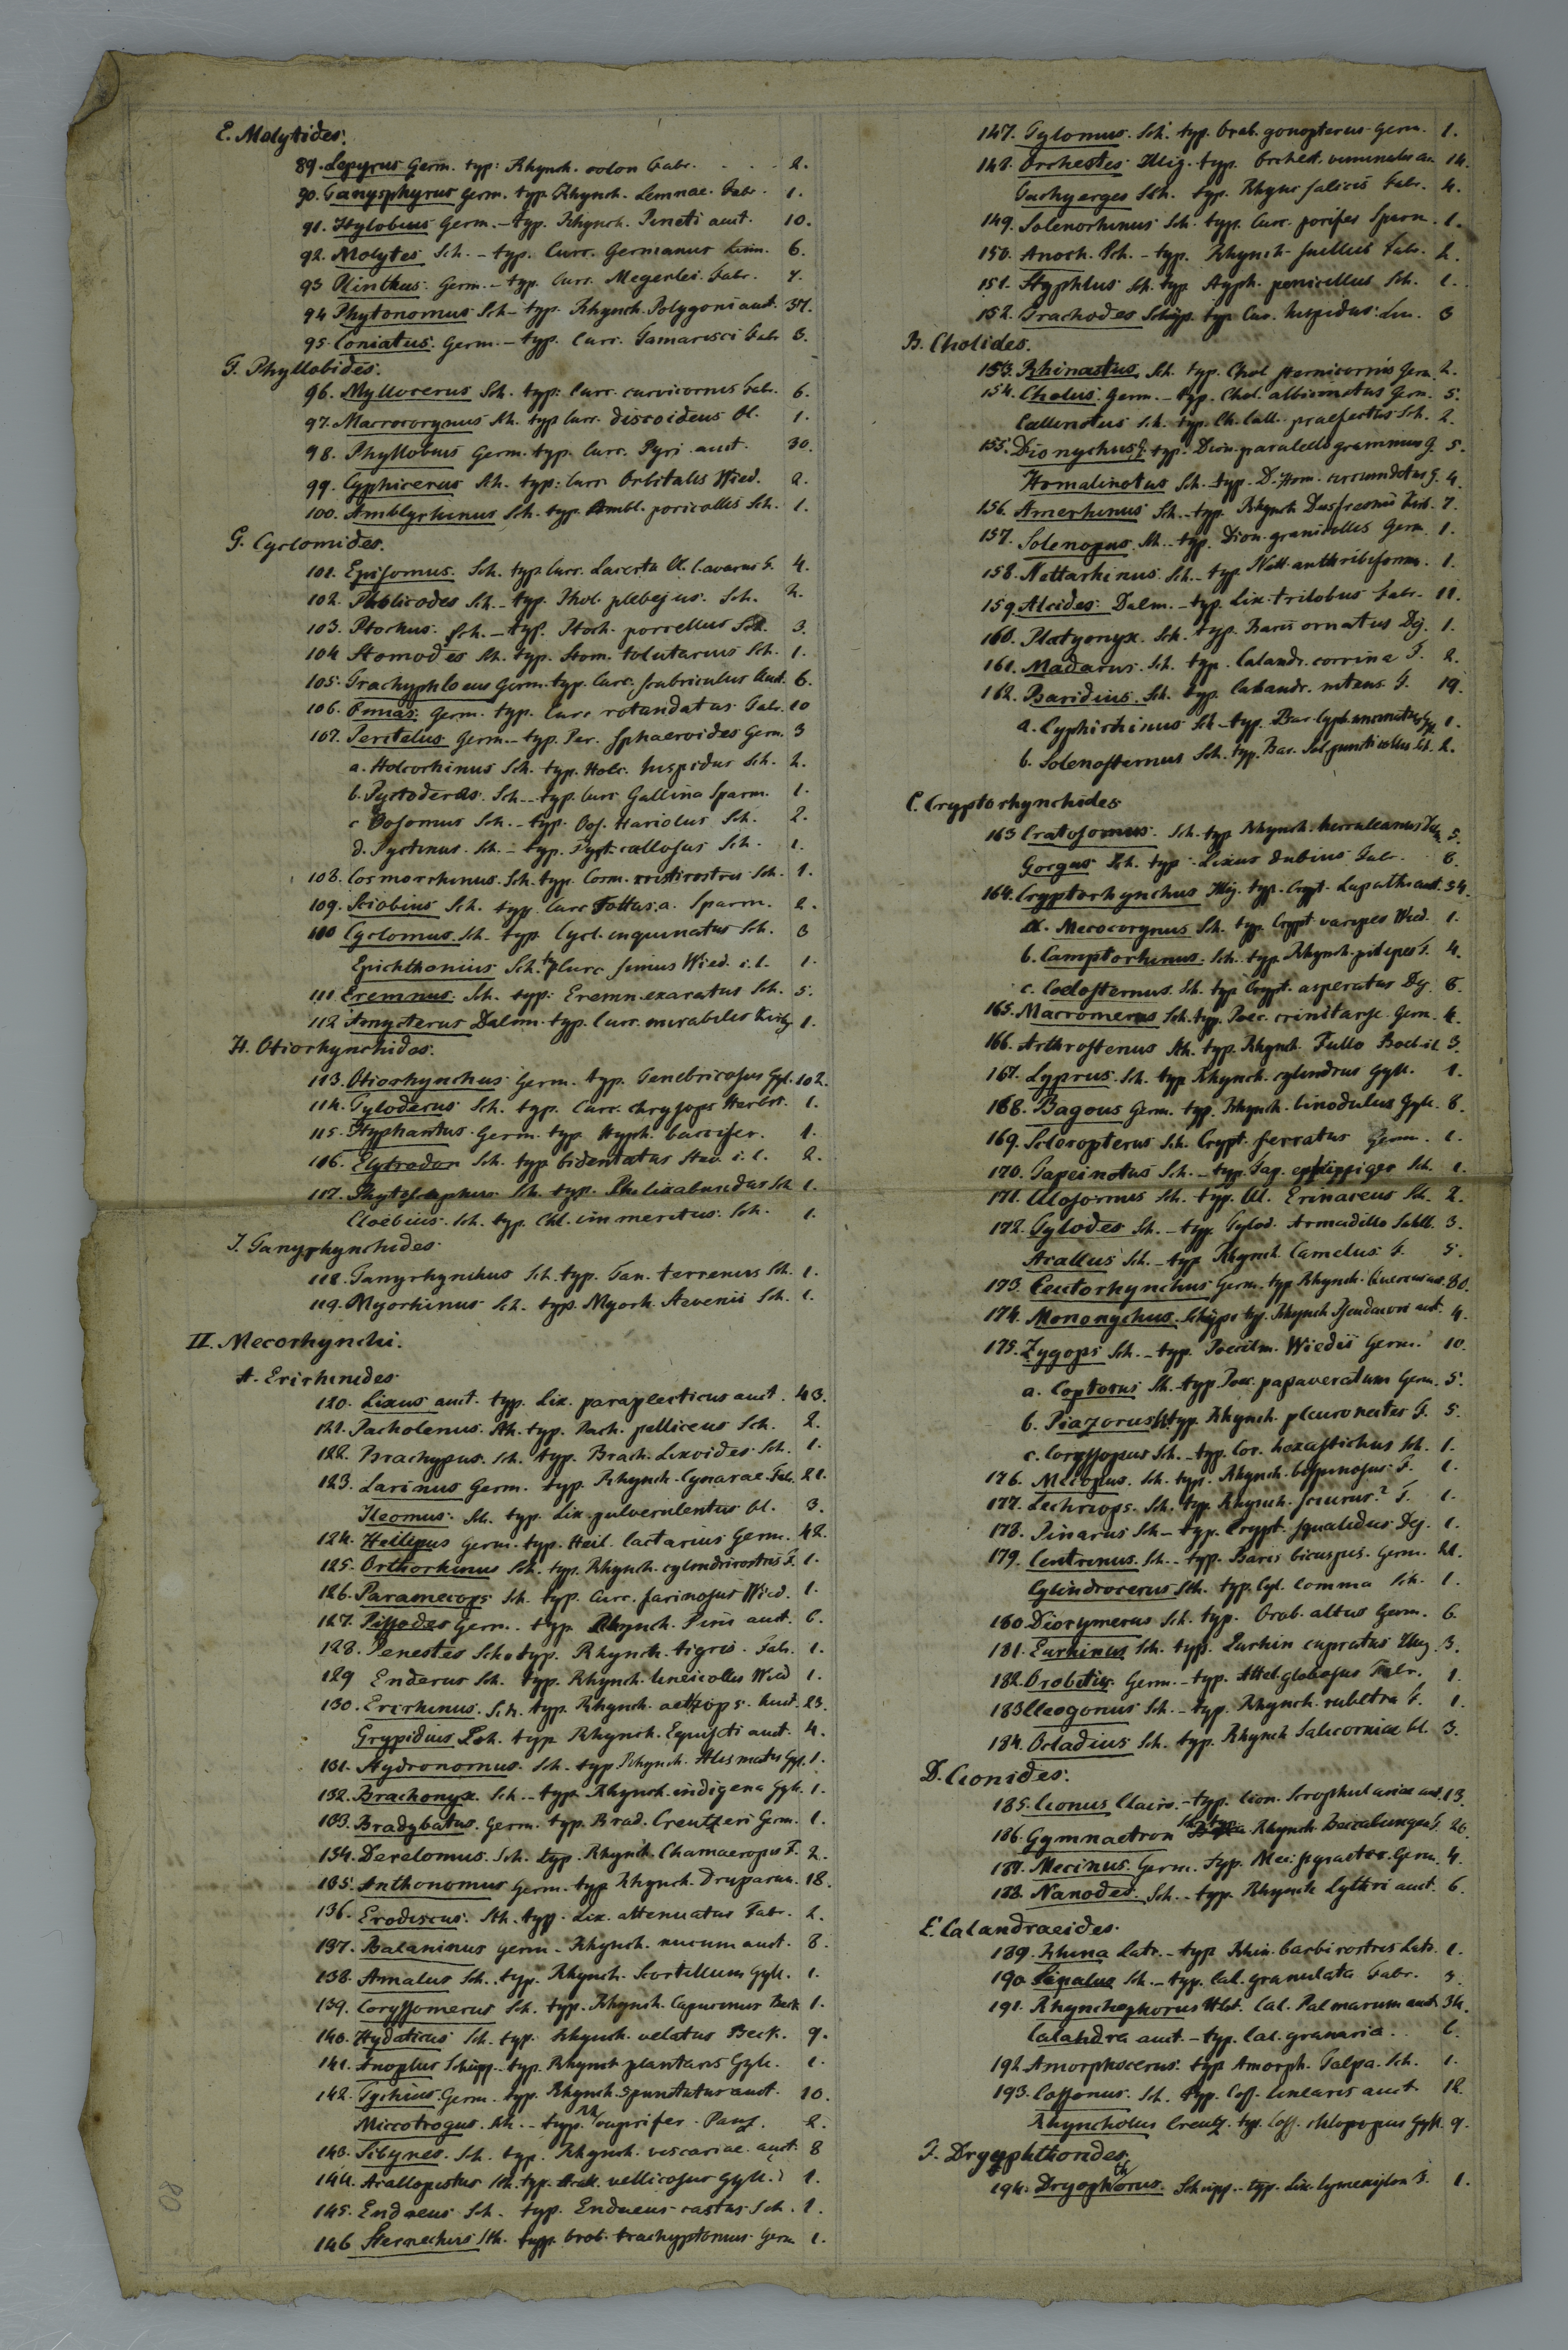 E. Molytides.
89. Lepyrus Germ. typ: Rhynch. colon Fabr. . . . 2.
90. Tanysphyrus Germ. typ. Rhynch. Lemnae. Fabr. 1.
91. Hylobius Germ. - typ. Rhynch. Pineti auct. 10.
92. Molytes Sch. - typ. Curc. Germanus Linn. 6.
93 Plinthus. Germ. - typ. Curc. Megerlei. Fabr. 7.
94 Phytonomus Sch - typ. Rhynch. Polygoni auct. 37.
95. Coniatus. Germ. - typ. Curc. Tamarisci Fabr 3.
F. Phyllobides.
96. Myllocerus Sch. typ: Curc. curvicornis Fabr. 6.
97. Macrocorynus Sch. typ Curc. discoideus Ol. 1.
98. Phyllobius Germ. typ. Curc. Pyri auct. 30.
99. Cyphicerus Sch. typ: Curc. Orbitalis Wied. 2.
100. Amblyrhinus Sch. typ. Ambl. poricollis Sch. 1.
G. Cyclomides.
101. Episomus. Sch. typ Curc. Lacerta Ol. C. avarus F. 4.
102. Pholicodes Sch. - typ. Phol. plebejus. Sch. 2.
103. Ptochus. Sch. - typ. Ptoch. porcellus Sch. 3.
104 Stomodes Sch. typ. Stom. tolutarius Sch. 1.
105. Trachyphloeus Germ. typ. Curc. scabriculus Auct. 6.
106. Omias: Germ. typ. Curc rotundatus Fabr. 10
107. Peritelus Germ. - typ. Per. sphaeroides Germ. 3
a. Holcorhinus Sch. typ. Holc. hispidus Sch. 2.
b. Pyctoderes. Sch. - typ. Curc. Gallina Sparm. 1.
c Oosomus Sch. - typ. Oos. Hariolus Sch. 2.
d. Pyctinus. Sch. - typ. Pyct. callosus Sch. 1.
108. Cosmorhinus. Sch. typ. Cosm. cristirostris Sch. 1.
109. Sciobius Sch. typ. Curc Tottus. a. Sparm. 2.
110 Cyclomus. Sch. typ. Cycl. inquinatus Sch. 3
Epichthonius Sch. typ Curc simus Wied. i. l. 1.
111 Eremnus. Sch. typ: Eremn. exaratus Sch. 5.
112 Amycterus Dalm. typ. Curc. mirabilis Kirby 1.
H. Otiorhynchides.
113. Otiorhynchus Germ. typ. Tenebricosus Gyl. 102.
114. Tyloderus Sch. typ. Curc. chrysops Herbst. 1.
115. Hyphantus Germ. typ Hyph. baccifer. 1.
116. Elytrodon Sch. typ bidentatus Stev. i. l. 2.
117. Phytoscaphus. Sch. typ. Ph. lixabundus Sch 1.
Cloebius. Sch. typ. Chl. immeritus. Sch. 1.
I. Tanyrhynchides
118. Tanyrhynchus Sch. typ. Tan. terrenus Sch. 1.
119. Myorhinus Sch. typ. Myorh. Stevenii Sch. 1.
II. Mecorhynchi.
A. Erirhinides
120. Lixus auct. typ. Lix. paraplecticus auct. 43.
121. Pacholenus. Sch. typ. Pach. pelliceus Sch. 2.
122. Brachypus. Sch. typ. Brach. Lixoides. Sch. 1.
123. Larinus Germ. typ. Rhynch. Cynarae. Fabr. 21.
Ileomus. Sch. typ. Lix. pulverulentus Ol. 3.
124. Heilipus Germ. typ. Heil. lactarius Germ. 42.
125. Orthorhinus Sch. typ. Rhynch. cylindrirostris F. 1.
126. Paramecops Sch. typ. Curc. farinosus Wied. 1.
127. Pissodes Germ. typ Rhynch. Pini auct. 6.
128. Penestes Sch. typ. Rhynch. tigris. Fabr. 1.
129 Enderus Sch. typ. Rhynch. lineicollis Wied 1.
130. Erirhinus. Sch. typ. Rhynch. aethiops. Auct. 23.
Grypidius Sch. typ. Rhynch. Equiseti auct. 4.
131. Hydronomus. Sch. typ Rhynch. Alismatis Gyl. 1.
132. Brachonyx. Sch. - typ. Rhynch. indigena Gyll. 1.
133. Bradybatus. Germ. typ. Brad. Creutzeri Germ. 1.
134. Derelomus. Sch. typ. Rhynch. Chamaeropis F. 2.
135. Anthonomus Germ. typ Rhynch. Druparum. 18.
136. Erodiscus. Sch. typ. Lix. attenuatus Fabr. 2.
137. Balaninus Germ. Rhynch. nucum auct. 8.
138. Amalus Sch. typ. Rhynch. Scortillum Gyll. 1.
139. Coryssomerus Sch. typ. Rhynch. Capucinus Beck 1.
140. Hydaticus Sch. typ. Rhynch. velatus Beck. 9.
141. Anoplus Schüpp. typ. Rhynch plantaris Gyll. 1.
142. Tychius. Germ. typ. Rhynch. 5punctatus auct. 10.
Miccotrogus. Sch. - typ. Rh cuprifer. Panz. 2.
143. Sibynes. Sch. typ. Rhynch. viscariae. auct. 8
144. Acallopistus Sch. typ. Acal. vellicosus Gyll. 1.
145. Endaeus Sch. typ. Endaeus castus Sch. 1.
146 Sternechus Sch. typ. Orob. trachyptomus. Germ 1.
147. Tylomus. Sch. typ. Orob. gonopterus. Germ. 1.
148. Orchestes Illig. typ. Orchest. viminalis au. 14.
Tachyerges Sch. typ. Rhync salicis Fabr. 4.
149. Solenorhinus Sch. typ. Curc. porifer Sparm. 1.
150. Anoch. Sch. - typ. Rhynch. suillus Fabr. 2.
151. Styphlus Sch. typ Styph. penicillus Sch. 1.
152. Trachodes Schüpp. typ. Cur. hispidus: Lin. 3
B. Cholides.
153. Rhinastus Sch. typ. Chol sternicornis Germ. 2.
154. Cholus: Germ. - typ. Chol. albicinctus Germ. 5.
Callinotus Sch. typ. Ch. Call. praefectus Sch. 2.
155. Dionychus G. typ. Dion. paralellogrammus G. 5.
Homalinotus Sch. - typ. D. Hom. circumdatus G. 4.
156. Amerhinus Sch. - typ. Rhynch Dufresnii Kirb. 7.
157. Solenopus. Sch. - typ. Dion. granicollis Germ. 1.
158. Nettarhinus. Sch. - typ Nett. anthribiformis. 1.
159. Alcides: Dalm. - typ. Lix. trilobus Fabr. 11.
160. Platyonyx. Sch. typ. Baris ornatus Dej. 1.
161. Madarus. Sch. typ. Calandr. corvina F. 2.
162. Baridius. Sch. typ. Calandr. nitens F. 19.
a. Cyphirhinus Sch - typ. Bar. Cyph. Gyl. 1.
b. Solenosternus Sch. typ. Bar. Sol. puncticollis Sch. 2.
C. Cryptorhynchides.
163 Cratosomus. Sch. typ Rhynch. herculeanus Fab. 5.
Gorgus Sch. typ. Lixus dubius Fabr. 6.
164. Cryptorhynchus Illig. typ. Crypt. Lapathi auct. 54.
a. Mecocorynus Sch. typ. Crypt. varipes Wied. 1.
b. Camptorhinus. Sch. typ. Rhynch. pilipes F. 4.
c. Coelosternus. Sch. typ Crypt. asperatus Dej. 6.
165. Macromerus Sch. typ. Poec. crinitarse. Germ. 4.
166. Arthrostenus Sch. typ. Rhynch. Fullo Boeb. i.l. 3.
167. Lyprus. Sch. typ Rhynch. cylindrus Gyll. 1.
168. Bagous Germ. typ. Rhynch. binodulus Gyll. 8.
169. Scleropterus Sch. Crypt. serratus Germ. 1.
170. Tapeinotus Sch. - typ. Tap. ephippiger Sch. 1.
171. Ulosomus Sch. typ. Ul. Erinaceus Sch. 2.
172. Tylodes Sch. - typ. Tylod. Armadillo Sahlb. 3.
Acallus Sch. - typ. Rhynch. Camelus. F. 5.
173. Ceutorhynchus Germ. typ Rhynch. Quercus au. 80.
174. Mononychus. Schüpp. typ. Rhynch Pseudacori auct. 4.
175. Zygops Sch. - typ. Poecilm. Wiedii Germ. 10.
a. Coptorus Sch. - typ Poec. papaveratum Germ. 5.
b. Piazorus Sch. typ. Rhynch. pleuronectes F. 5.
c. Coryssopus Sch. - typ. Cor. hexastichus Sch. 1.
176. Mecopus. Sch. typ. Rhynch. bispinosus. F. 1.
177. Lechriops. Sch. typ. Rhynch. sciurus? F. 1.
178. Pinarus Sch - typ. Crypt. squalidus. Dej. 1.
179. Centrinus. Sch. - typ. Baris bicuspis. Germ. 21.
Cylindrocerus Sch. typ. Cyl. Comma Sch. 1.
180. Diorymerus Sch. typ. Orob. altus Germ. 6.
181. Eurhinus Sch. typ. Eurhin cupratus Illig. 3.
182. Orobitis. Germ. - typ. Attel. globosus Fabr. 1.
183 Cleogonus Sch. - typ. Rhynch. rubetra F. 1.
184. Ocladius Sch. typ. Rhynch Salicorniae Ol. 3.
D. Cionides.
185. Cionus Clairv. - typ. Cion. Scrophulariae auct. 13.
186. Gymnaetron Sch. typ. Rhynch Beccabungae F. 26.
187. Mecinus. Germ. typ. Mec. pyraster. Germ. 4.
188. Nanodes. Sch. - typ. Rhynch Lythri auct. 6.
E. Calandraeides.
189. Rhina Latr. - typ Rhin. barbirostris Latr. 1.
190. Sipalus Sch. - typ. Cal. granulata Fabr. 3.
191. Rhynchophorus Hbst. Cal. Palmarum auct. 34.
Calandra auct. - typ. Cal. granaria. 6.
192 Amorphocerus. typ Amorph. Talpa. Sch. 1.
193. Cossonus. Sch. typ. Coss. linearis auct. 12.
Rhyncholus Creutz. typ. Coss. chlopopus Gyll. 9.
F. Dryophthorides
194. Dryophthorus. Schüpp. - typ. Lix. lymexylon F. 1.
80